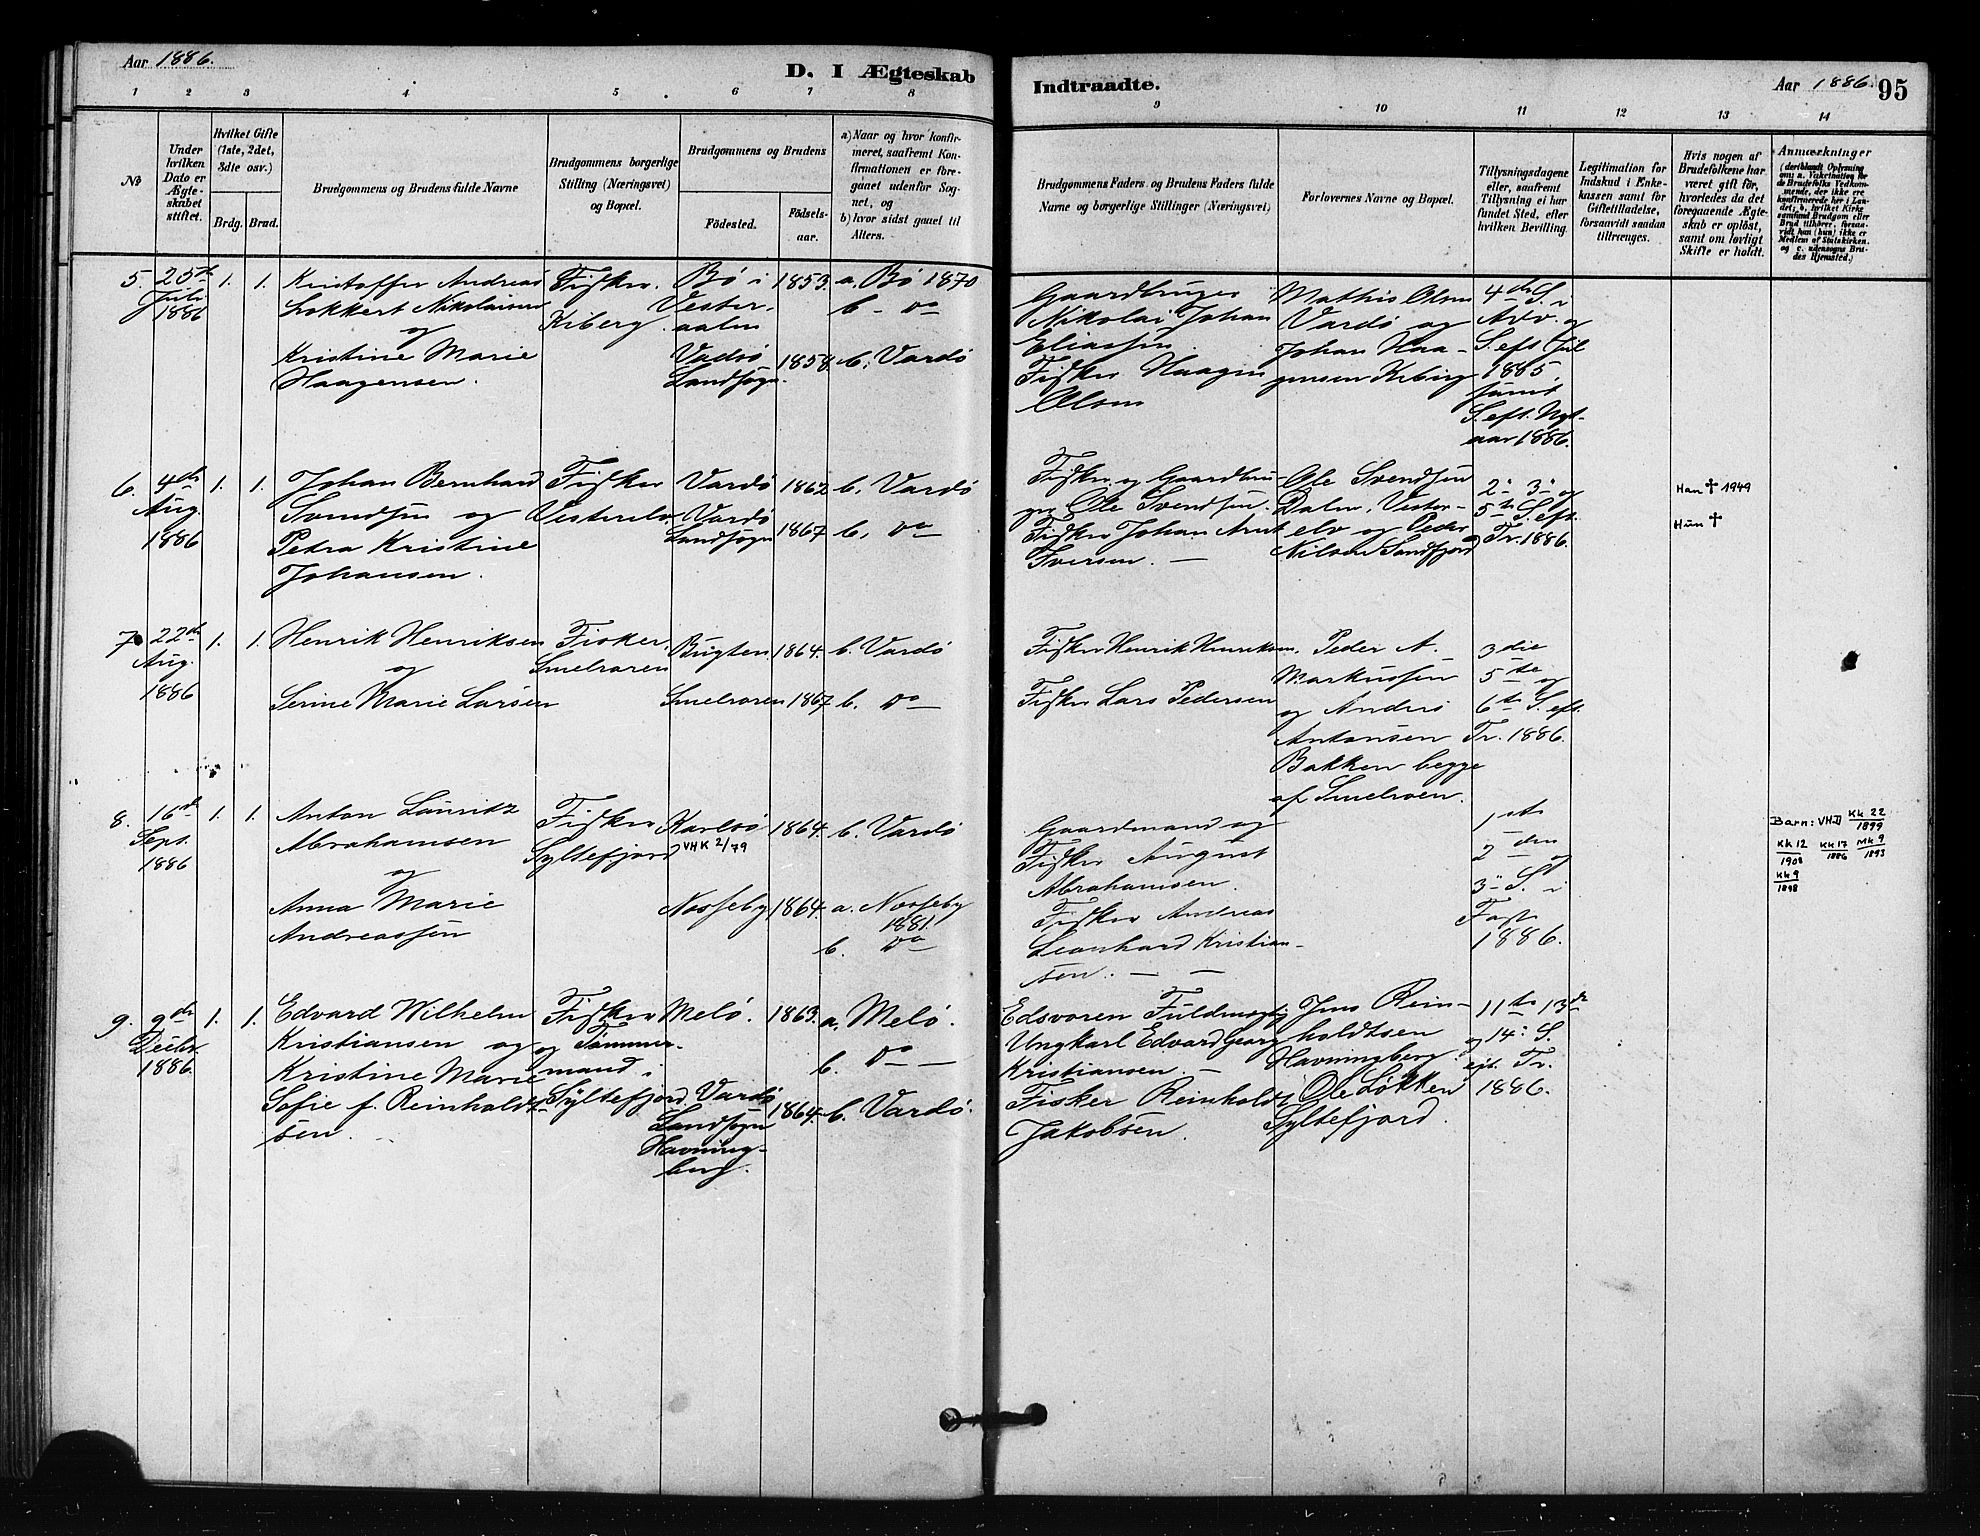 Aar 1886.
D. I Ægteskab
Indtraadte.
Aar 1886. 95
1 2 3 4 5 6 7 8
9 10 11 12 13 14
№
Under hvilken Dato er Ægte-skabet stiftet.
Hvilket Gifte (1ste, 2det, 3die osv.)
Brdg. Brud.
Brudgommens og Brudens fulde Navne
Brudgommens borgerlige Stilling (Næringsvei) og Bopæl.
Brudgommens og Brudens
Fødested. Fødsels-aar.
a) Naar og hvor konfir-meret, saafremt Kon-firmationen er fore-gaaet udenfor Sog-net, og
b) hvor sidst gaaet til Alters.
Brudgommens Faders og Brudens Faders fulde Navne og borgerlige Stillinger (Næringsvei)
Forlovernes Navne og Bopæl.
Tillysningsdagene eller, saafremt Tillysning ei har fundet Sted, efter hvilken Bevilling.
Legitimation for Indskud i Enke-kassen samt for Giftetilladelse, forsaavidt saadan tiltrænges.
Hvis nogen af Brudefolkene har været gift før, hvorledes da det foregaaende Ægte-skab er opløst, samt om lovligt Skifte er holdt.
Anmærkninger (deriblandt Oplysning om: a. Vakcination for de Brudefolks Vedkom-mende, der ikke ere konfirmerede her i Lan-det; b. hvilket Kirke-samfund Brudgom eller Brud tilhører, forsaa-vidt han (hun) ikke er Medlem af Statskirken, og c. udensogns Bru-des Hjemsted.)
5. 25de Juli 1886
1. 1.
Kristoffer Andreas
Lokkert Nikolaisen
og
Kristine Marie
Haagensen.
Fisker.
Kiberg.
Bø i
Vester-
aalen
1853.
a. Bø 1870
b. do
Vadsø
Landsogn.
1858.
b. Vardø
Gaardbruger
Nikolai Johan
Eliassen.
Fisker Haagen
Olsen
Mathis Olsen
Vardø og
Johan Haa-
gensen Kiberg
4de S. i
Adv. og
S. eft. Jul
1885,
samt
S. eft. Nyt-
aar 1886.
6. 4de Aug. 1886
1. 1.
Johan Bernhard
Svendsen og
Petra Kristine
Johansen.
Fisker
Vesterelv.
Vardø 1862 b. Vardø
Vardø
Landsogn 1867 b. do
Fisker og Gaardbru-
ger Ole Svendsen.
Fisker Johan Arnt
Iversen.
Ole Svendsen
Dalen, Vester-
elv og Peder
Nilsen Sandfjord
2. 3. og
5te S. eft.
Tr. 1886.
Han † 1949
Hun †
7. 22de Aug. 1886
1. 1.
Henrik Henriksen
og
Serine Marie Larsen
Fisker.
Smelroren
Bugten. 1864. b. Vardø
Smelroren 1867 b. do
Fisker Henrik Henriksen.
Fisker Lars Pedersen
Peder A.
Markussen
og Anders
Antonsen
Bakken begge
af Smelroen.
3die
5te og
6te S. eft.
Tr. 1886.
8. 16de Sept. 1886
1. 1.
Anton Lauritz
Abrahamsen
og
Anna Marie
Andreassen
Fisker
Syltefjord
Karlsø 1864. b. Vardø
VHK 2/79
Nesseby 1864. a. Nesseby
1881.
b. do
Gaardmand og
Fisker August
Abrahamsen.
Fisker Andreas
Leonhard Kristian-
sen.
1ste
2den
og
3. S. i
Faste
1886.
Barn: VHD Kk 22/1899
Kk 12/1901 Kk 17/1886 Mk 9/1893
Kk 9/1898
9. 9de Decbr. 1886.
1. 1.
Edvard Wilhelm
Kristiansen og
Kristine Marie
Sofie f. Reinholdt-
sen.
Fisker
og Tømmer-
mand i
Syltefjord
Melø. 1863. a. Melø.
b. do
Vardø
Landsogn
Havning-
berg. 1864. b. Vardø.
Edsvoren Fuldmægtig
Ungkarl Edvard Georg
Kristiansen.
Fisker Reinholdt
Jakobsen.
Jens Rein-
holdtsen
Havningberg.
Ole Løkken
Syltefjord.
11te 13de
og 14. S.
eft. Tr.
1886.